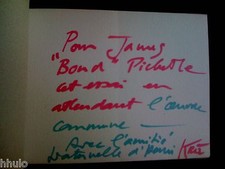 "Pour James
Bond" Pichette
cet essai en
attendant l'œuvre
commune —
Avec l'amitié
fraternelle d'Henri
hhulo